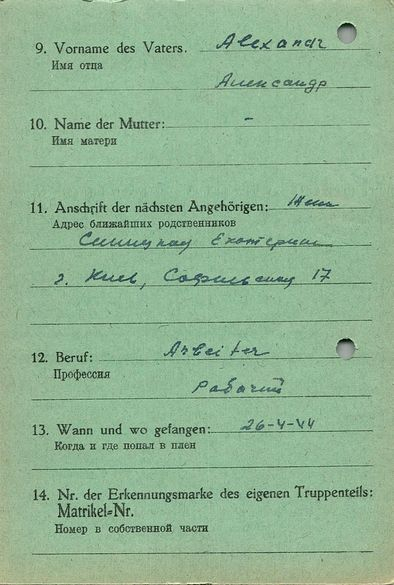 9. Vorname des Vaters. Alexandr
Имя отца
Александр
10. Name der Mutter: -
Имя матери
11. Anschrift der nächsten Angehörigen: Жена
Адрес ближайших родственников
Екатерина
г. Киев, 17
12. Beruf: Arbeiter
Профессия
Рабочий
13. Wann und wo gefangen: 26-4-44
Когда и где попал в плен
14. Nr. der Erkennungsmarke des eigenen Truppenteils:
Matrikel=Nr.
Номер в собственной части